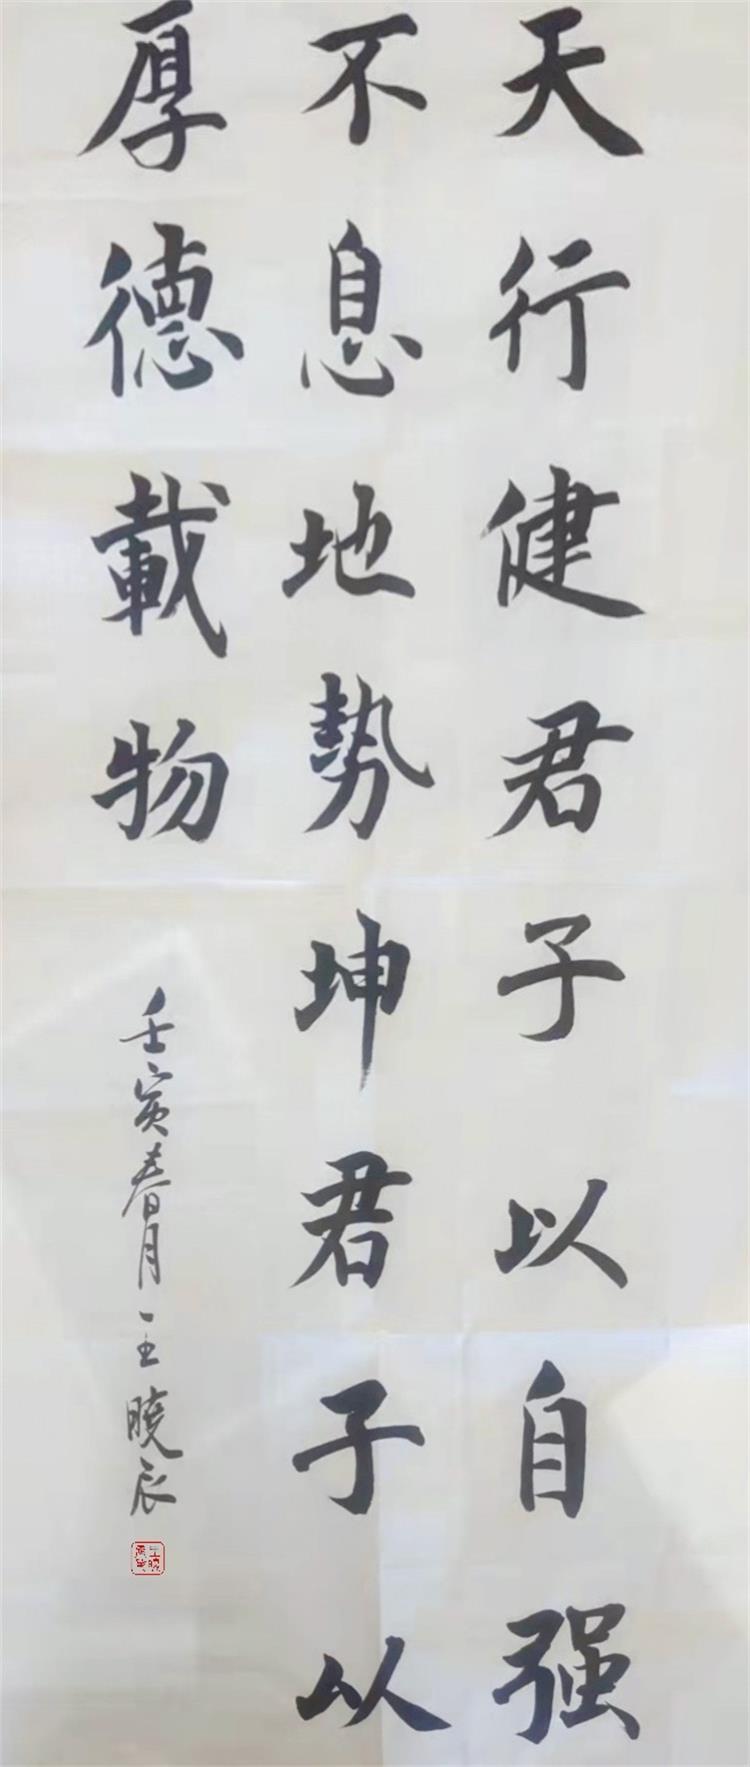 天行健君子以自强
不息地势坤君子以
厚德載物
壬寅春月王曉辰